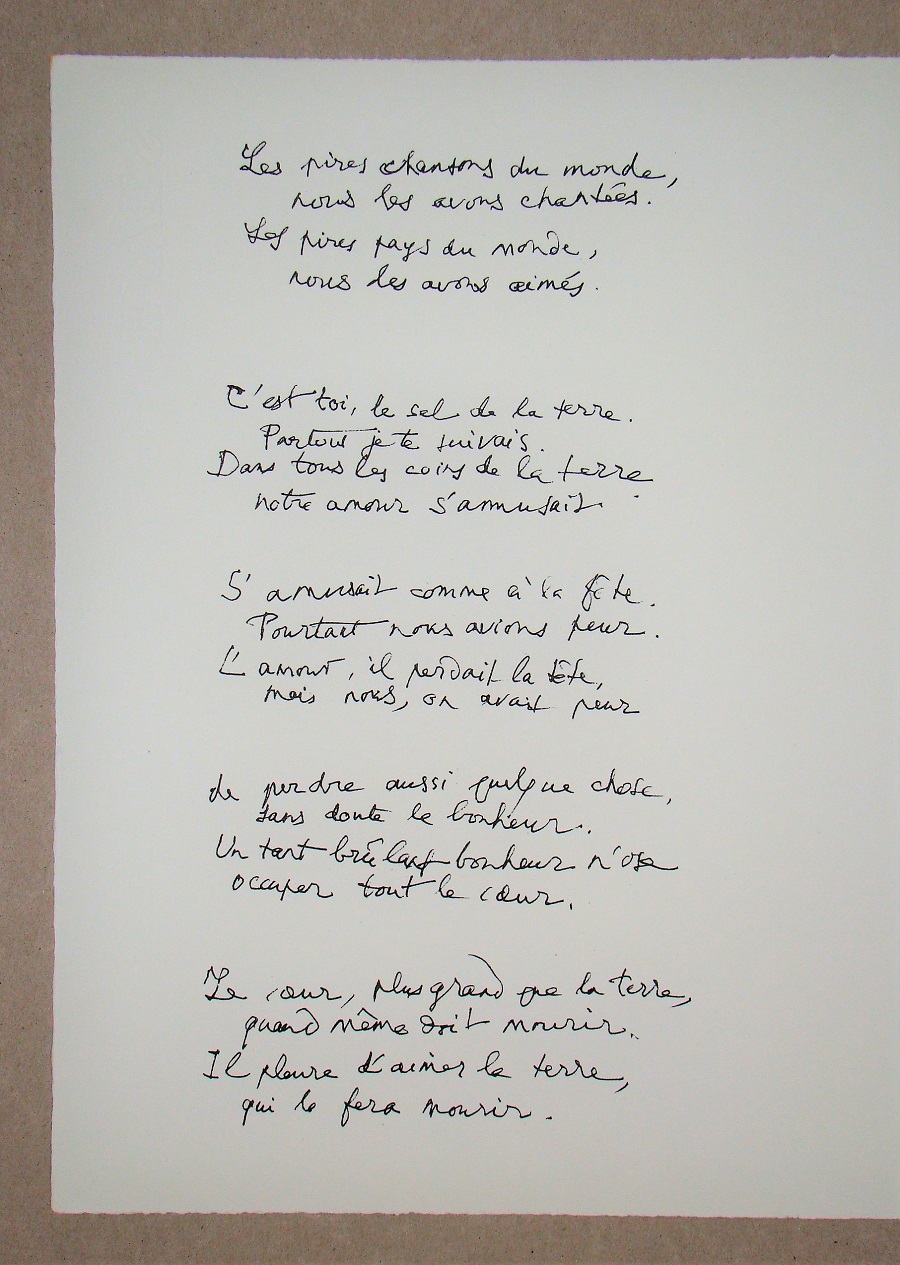 Les pires chansons du monde,
nous les avons chantées.
Les pires pays du monde,
nous les avons aimés.
C'est toi, le sel de la terre.
Partout je te suivais.
Dans tous les coins de la terre
notre amour s'amusait.
S'amusait comme à la fête.
Pourtant nous avions peur.
L'amour, il perdait la tête,
mais nous, on avait peur
de perdre aussi quelque chose,
sans doute le bonheur.
Un tant brûlant bonheur n'ose
occuper tout le cœur.
Le cœur, plus grand que la terre,
quand même doit mourir.
Il pleure d'aimer la terre,
qui le fera mourir.